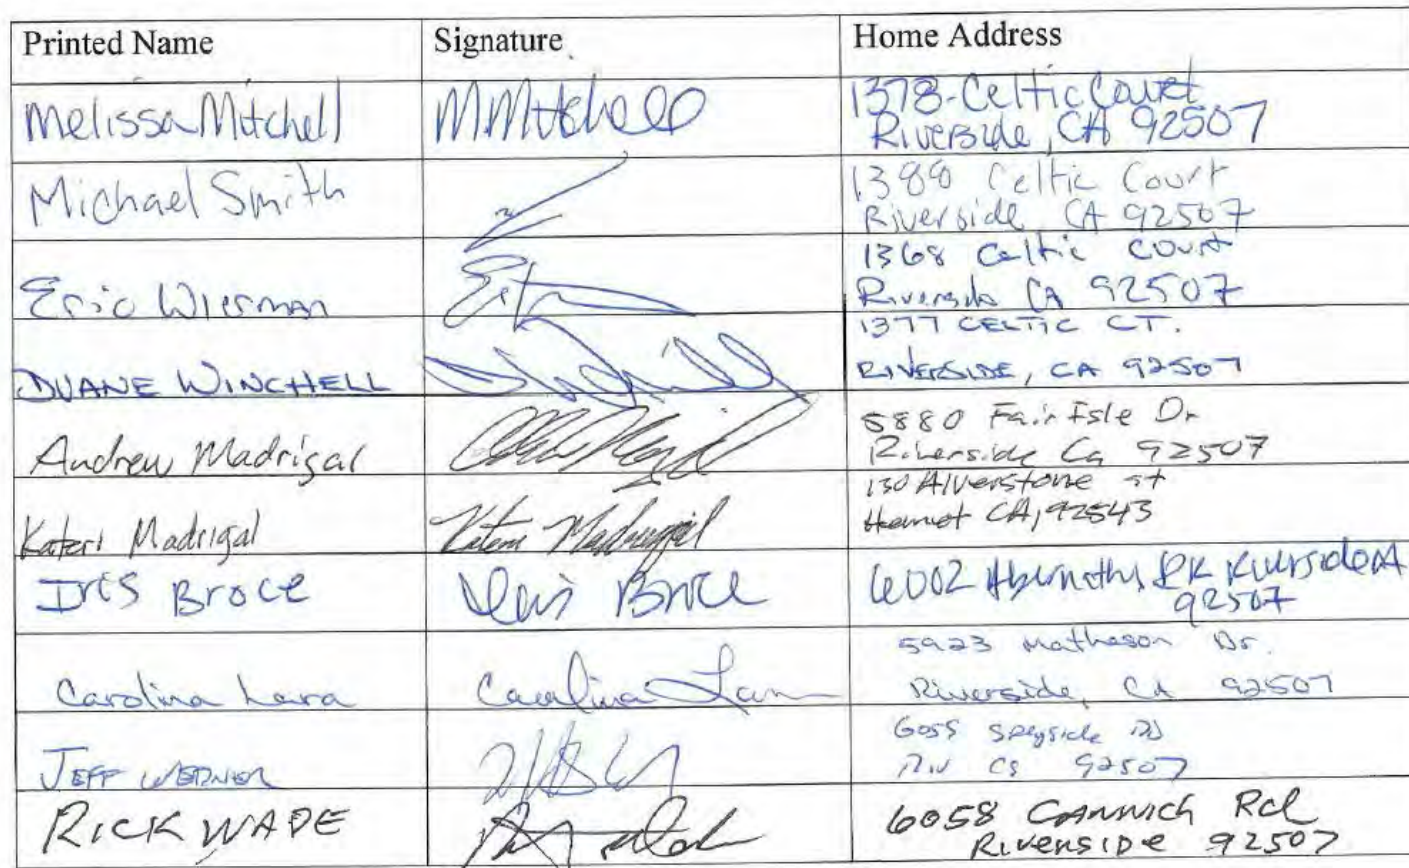 Printed Name Signature Home Address
Melissa Mitchell MMitchell 1378 Celtic Court
Riverside, CA 92507
Michael Smith 1388 Celtic Court
Riverside, CA 92507
Eric Wierman 1368 Celtic Court
Riverside CA 92507
DUANE WINCHELL 1377 CELTIC CT.
RIVERSIDE, CA 92507
Andrew Madrigal 5880 Fair Isle Dr
Riverside Ca 92507
Kateri Madrigal Kateri Madrigal 130 Alverstone st
Hemet CA, 92543
Iris Broce Iris Broce 6002 Abernathy DR Riverside CA
92507
Carolina Lara Carolina Lara 5923 Matheson Dr.
Riverside, CA 92507
JEFF 6055 Speyside RD
RIV Ca 92507
RICK WADE 6058 Rd
RIVERSIDE 92507